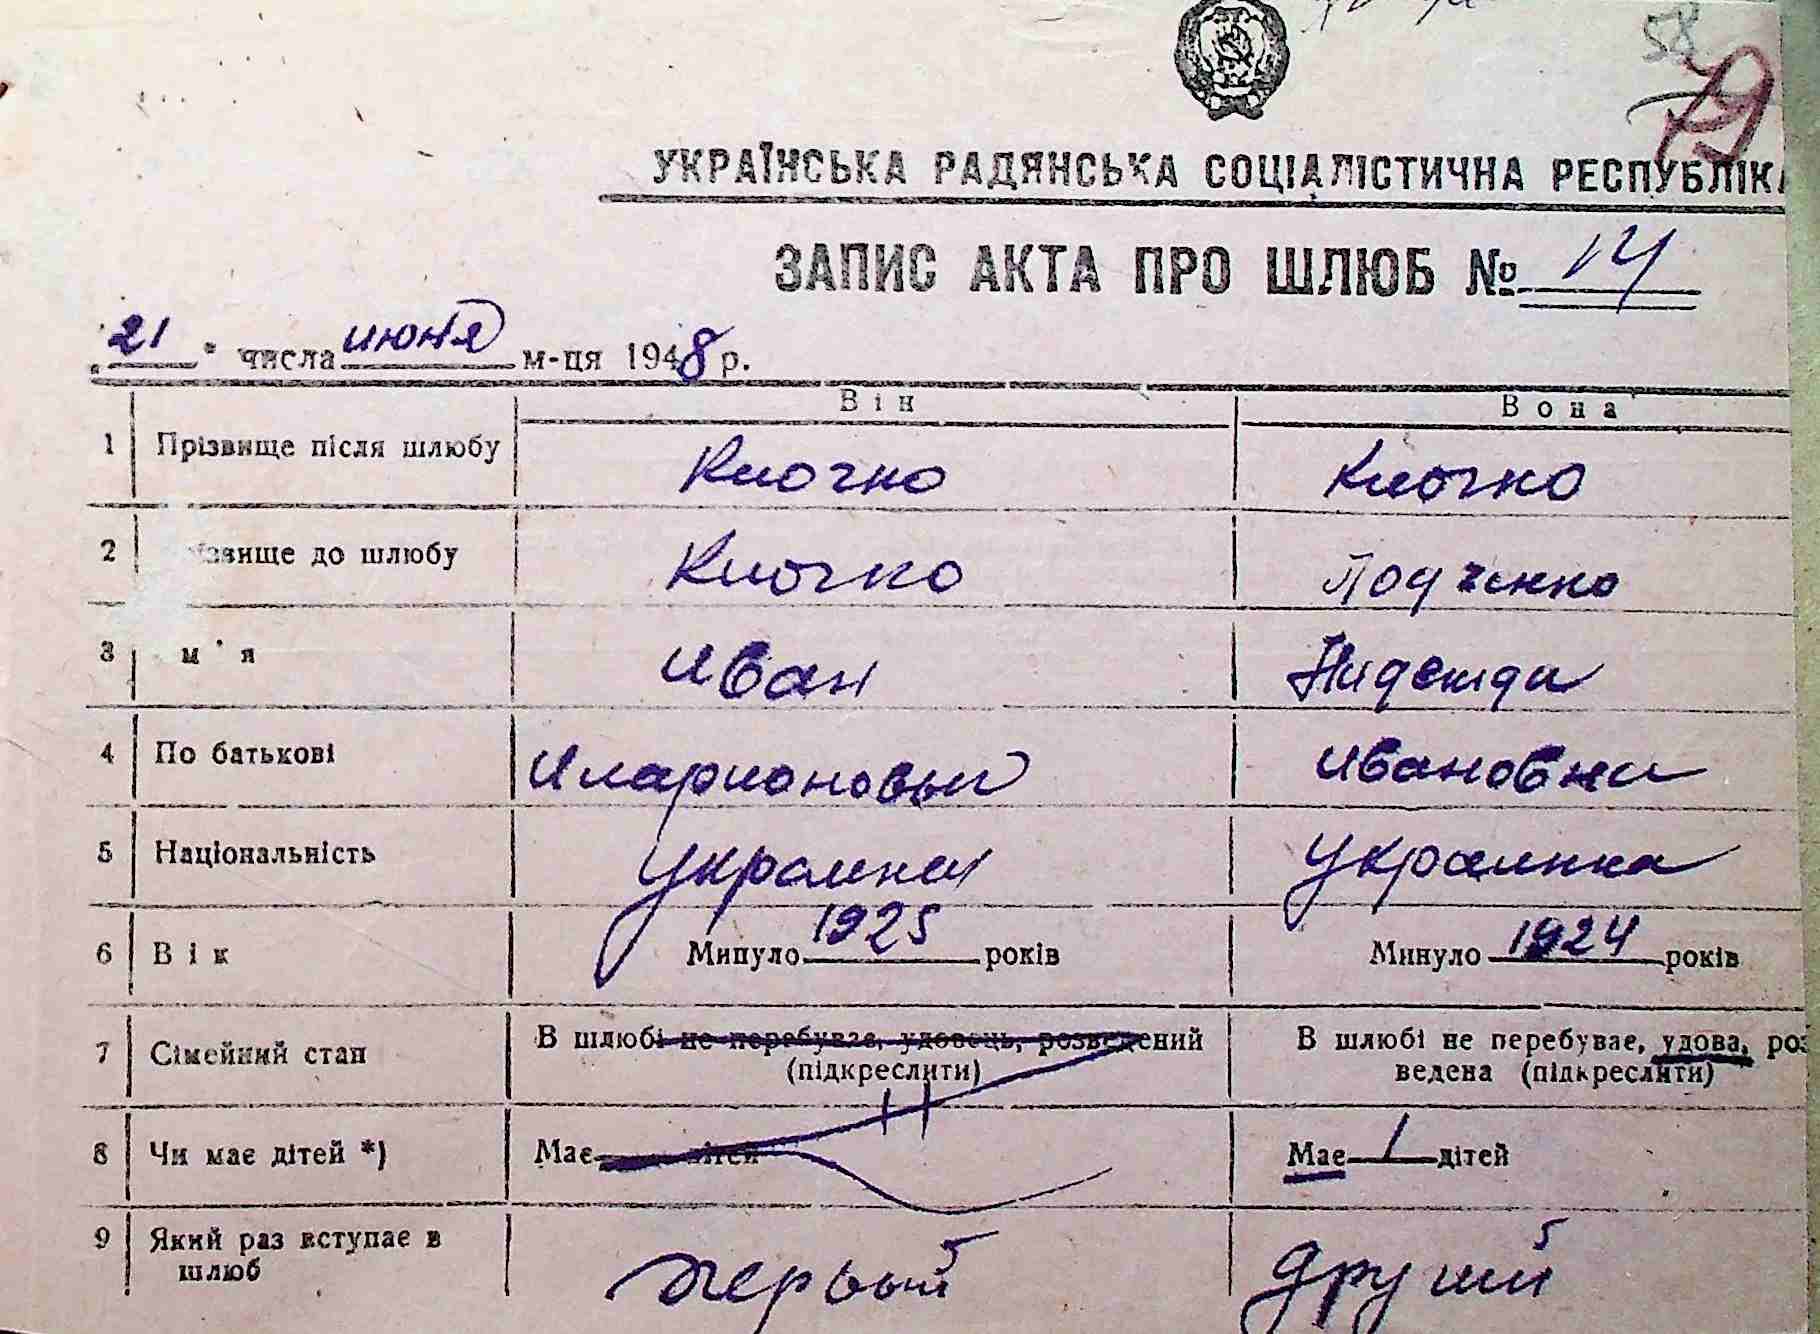 58
79
УКРАЇНСЬКА РАДЯНСЬКА СОЦІАЛІСТИЧНА РЕСПУБЛІКА
ЗАПИС АКТА ПРО ШЛЮБ № 14
„21“ числа июня м-ця 1948 р.
Він Вона
1 Прізвище після шлюбу Клочко Клочко
2 ізвище до шлюбу Клочко
3 м'я Иван Надежда
4 По батькові Иларионович Ивановна
5 Національність Украинец Украинка
6 Вік Минуло 1925 років Минуло 1924 років
7 Сімейний стан В шлюбі не перебуває, удовець, розведений В шлюбі не перебуває, удова, роз
(підкреслити) ведена (підкреслити)
8 Чи має дітей *) Має дітей Має 1 дітей
9 Який раз вступає в первый другий
шлюб